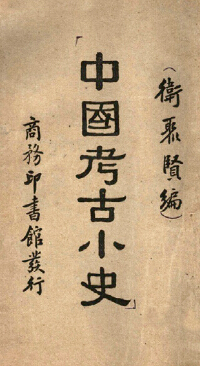 (衛聚賢編)
「中國考古小史」
商務印書館發行